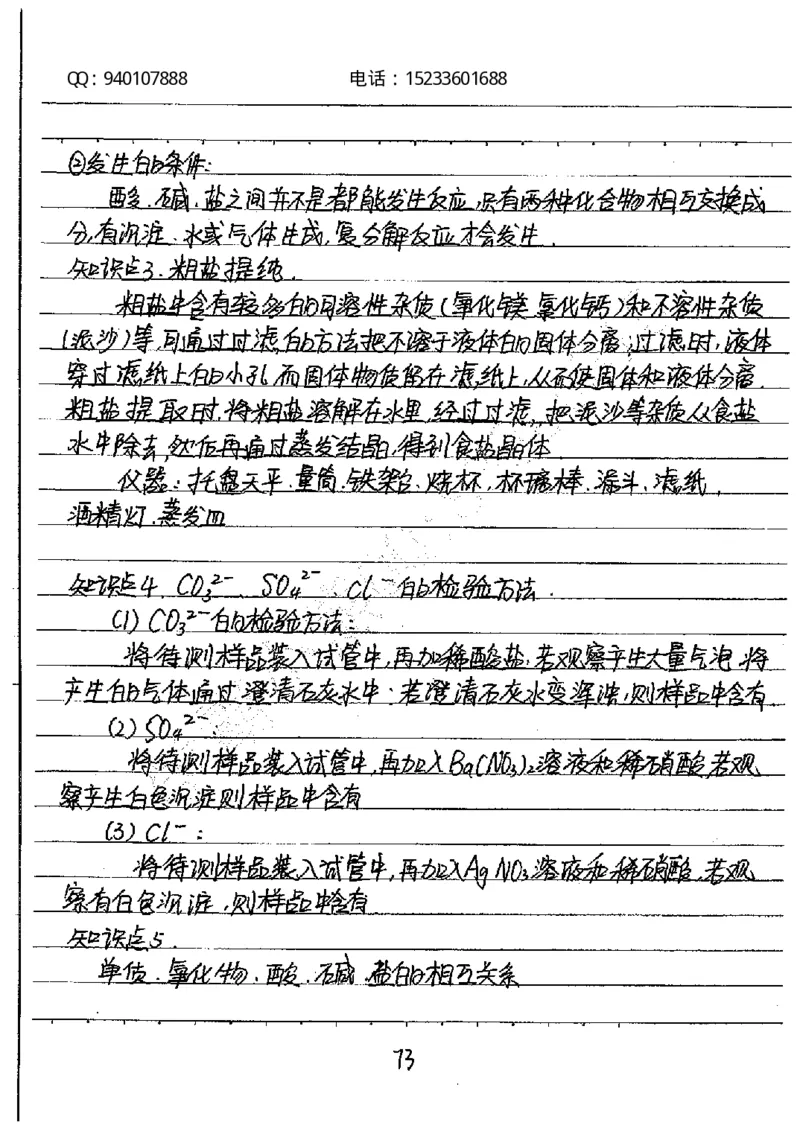 QQ：940107888 电话：15233601688
②发生的条件：
酸、碱、盐之间并不是都能发生反应，只有两种化合物相互交换成
分，有沉淀、水或气体生成，复分解反应才会发生．
知识点3．粗盐提纯．
粗盐中含有较多的可溶性杂质（氯化镁、氯化钙）和不溶性杂质
（泥沙）等，可通过过滤的方法把不溶于液体的固体分离，过滤时，液体
穿过滤纸上的小孔，而固体物质留在滤纸上，从而使固体和液体分离．
粗盐提取时，将粗盐溶解在水里，经过过滤，把泥沙等杂质从食盐
水中除去，然后再通过蒸发结晶，得到食盐晶体．
仪器：托盘天平、量筒、铁架台、烧杯，杯璃棒、漏斗、滤纸，
酒精灯、蒸发皿
知识点4、CO₃²⁻、SO₄²⁻、Cl⁻的检验方法．
(1) CO₃²⁻的检验方法：
将待测样品装入试管中，再加稀酸盐，若观察产生大量气泡，将
产生的气体通过澄清石灰水中；若澄清石灰水变浑浊，则样品中含有
(2) SO₄²⁻：
将待测样品装入试管中，再加入Ba(NO₃)₂溶液和稀硝酸，若观
察产生白色沉淀则样品中含有
(3) Cl⁻：
将待测样品装入试管中，再加入AgNO₃溶液和稀硝酸，若观
察有白色沉淀，则样品中含有
知识点5．
单质、氧化物、酸、碱、盐的相互关系
73